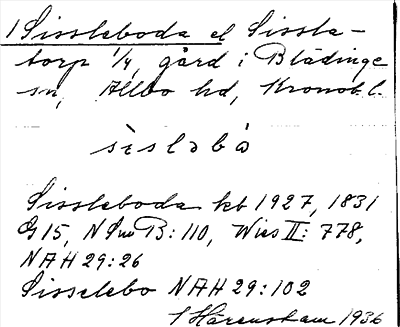 1 Sissleboda el Sissla-
torp 1/4, gård i Blädinge
sn, Allbo hd, Kronob. l.
sisləbå
Sissleboda kb 1927, 1831
G 15, NSmB: 110, Wies II: 778,
NAH 29:26
Sisselebo NAH 29:102
I Härenstam 1936